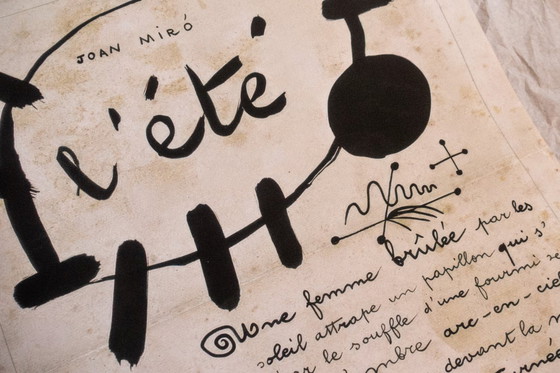 JOAN MIRÓ
l'été
Une femme brûlée par les
soleil attrape un papillon qui s'
le souffle d'une fourmi
ombre arc-en-cie
devant la